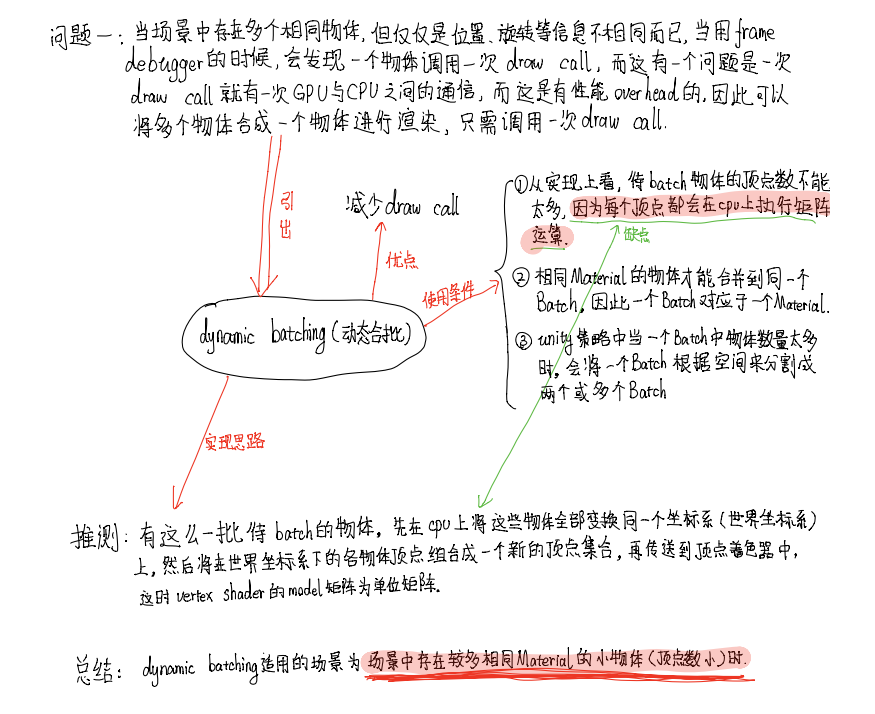 问题一：当场景中存在多个相同物体，但仅仅是位置、旋转等信息不相同而已，当用frame
debugger的时候，会发现一个物体调用一次draw call，而这有一个问题是一次
draw call就有一次GPU与CPU之间的通信，而这是有性能overhead的，因此可以
将多个物体合成一个物体进行渲染，只需调用一次draw call.
引出
减少draw call
优点
使用条件
①从实现上看，待batch物体的顶点数不能
太多，因为每个顶点都会在cpu上执行矩阵
运算.
缺点
② 相同Material的物体才能合并到同一个
Batch，因此一个Batch对应于一个Material.
③ unity策略中当一个Batch中物体数量太多
时，会将一个Batch根据空间来分割成
两个或多个Batch
dynamic batching（动态合批）
实现思路
推测：有这么一批待batch的物体，先在cpu上将这些物体全部变换同一个坐标系（世界坐标系）
上，然后将在世界坐标系下的各物体顶点组合成一个新的顶点集合，再传送到顶点着色器中，
这时vertex shader的model矩阵为单位矩阵.
总结：dynamic batching适用的场景为场景中存在较多相同Material的小物体（顶点数小）时.